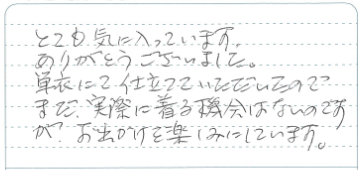 とても気に入っています。
ありがとうございました。
単衣にて仕立てていただいたので
まだ、実際に着る機会はないのです
が、お出かけを楽しみにしています。